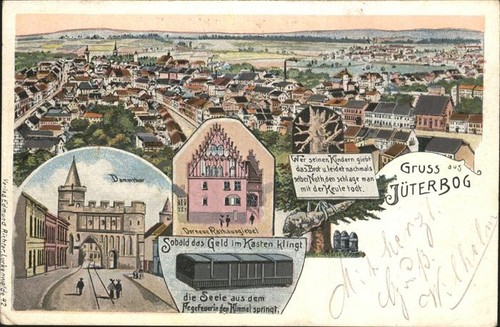 GRUSS aus
JÜTERBOG
Wer seinen Kindern giebt
das Brot u. leidet nachmals
selber Noth, den schlage man
mit der Keule todt.
Dammthor
Der neue Rathausgiebel
Sobald das Geld im Kasten klingt
die Seele aus dem
Fegefeuer in den Himmel springt.
Mit herzl.
Gruß
Wilhelm